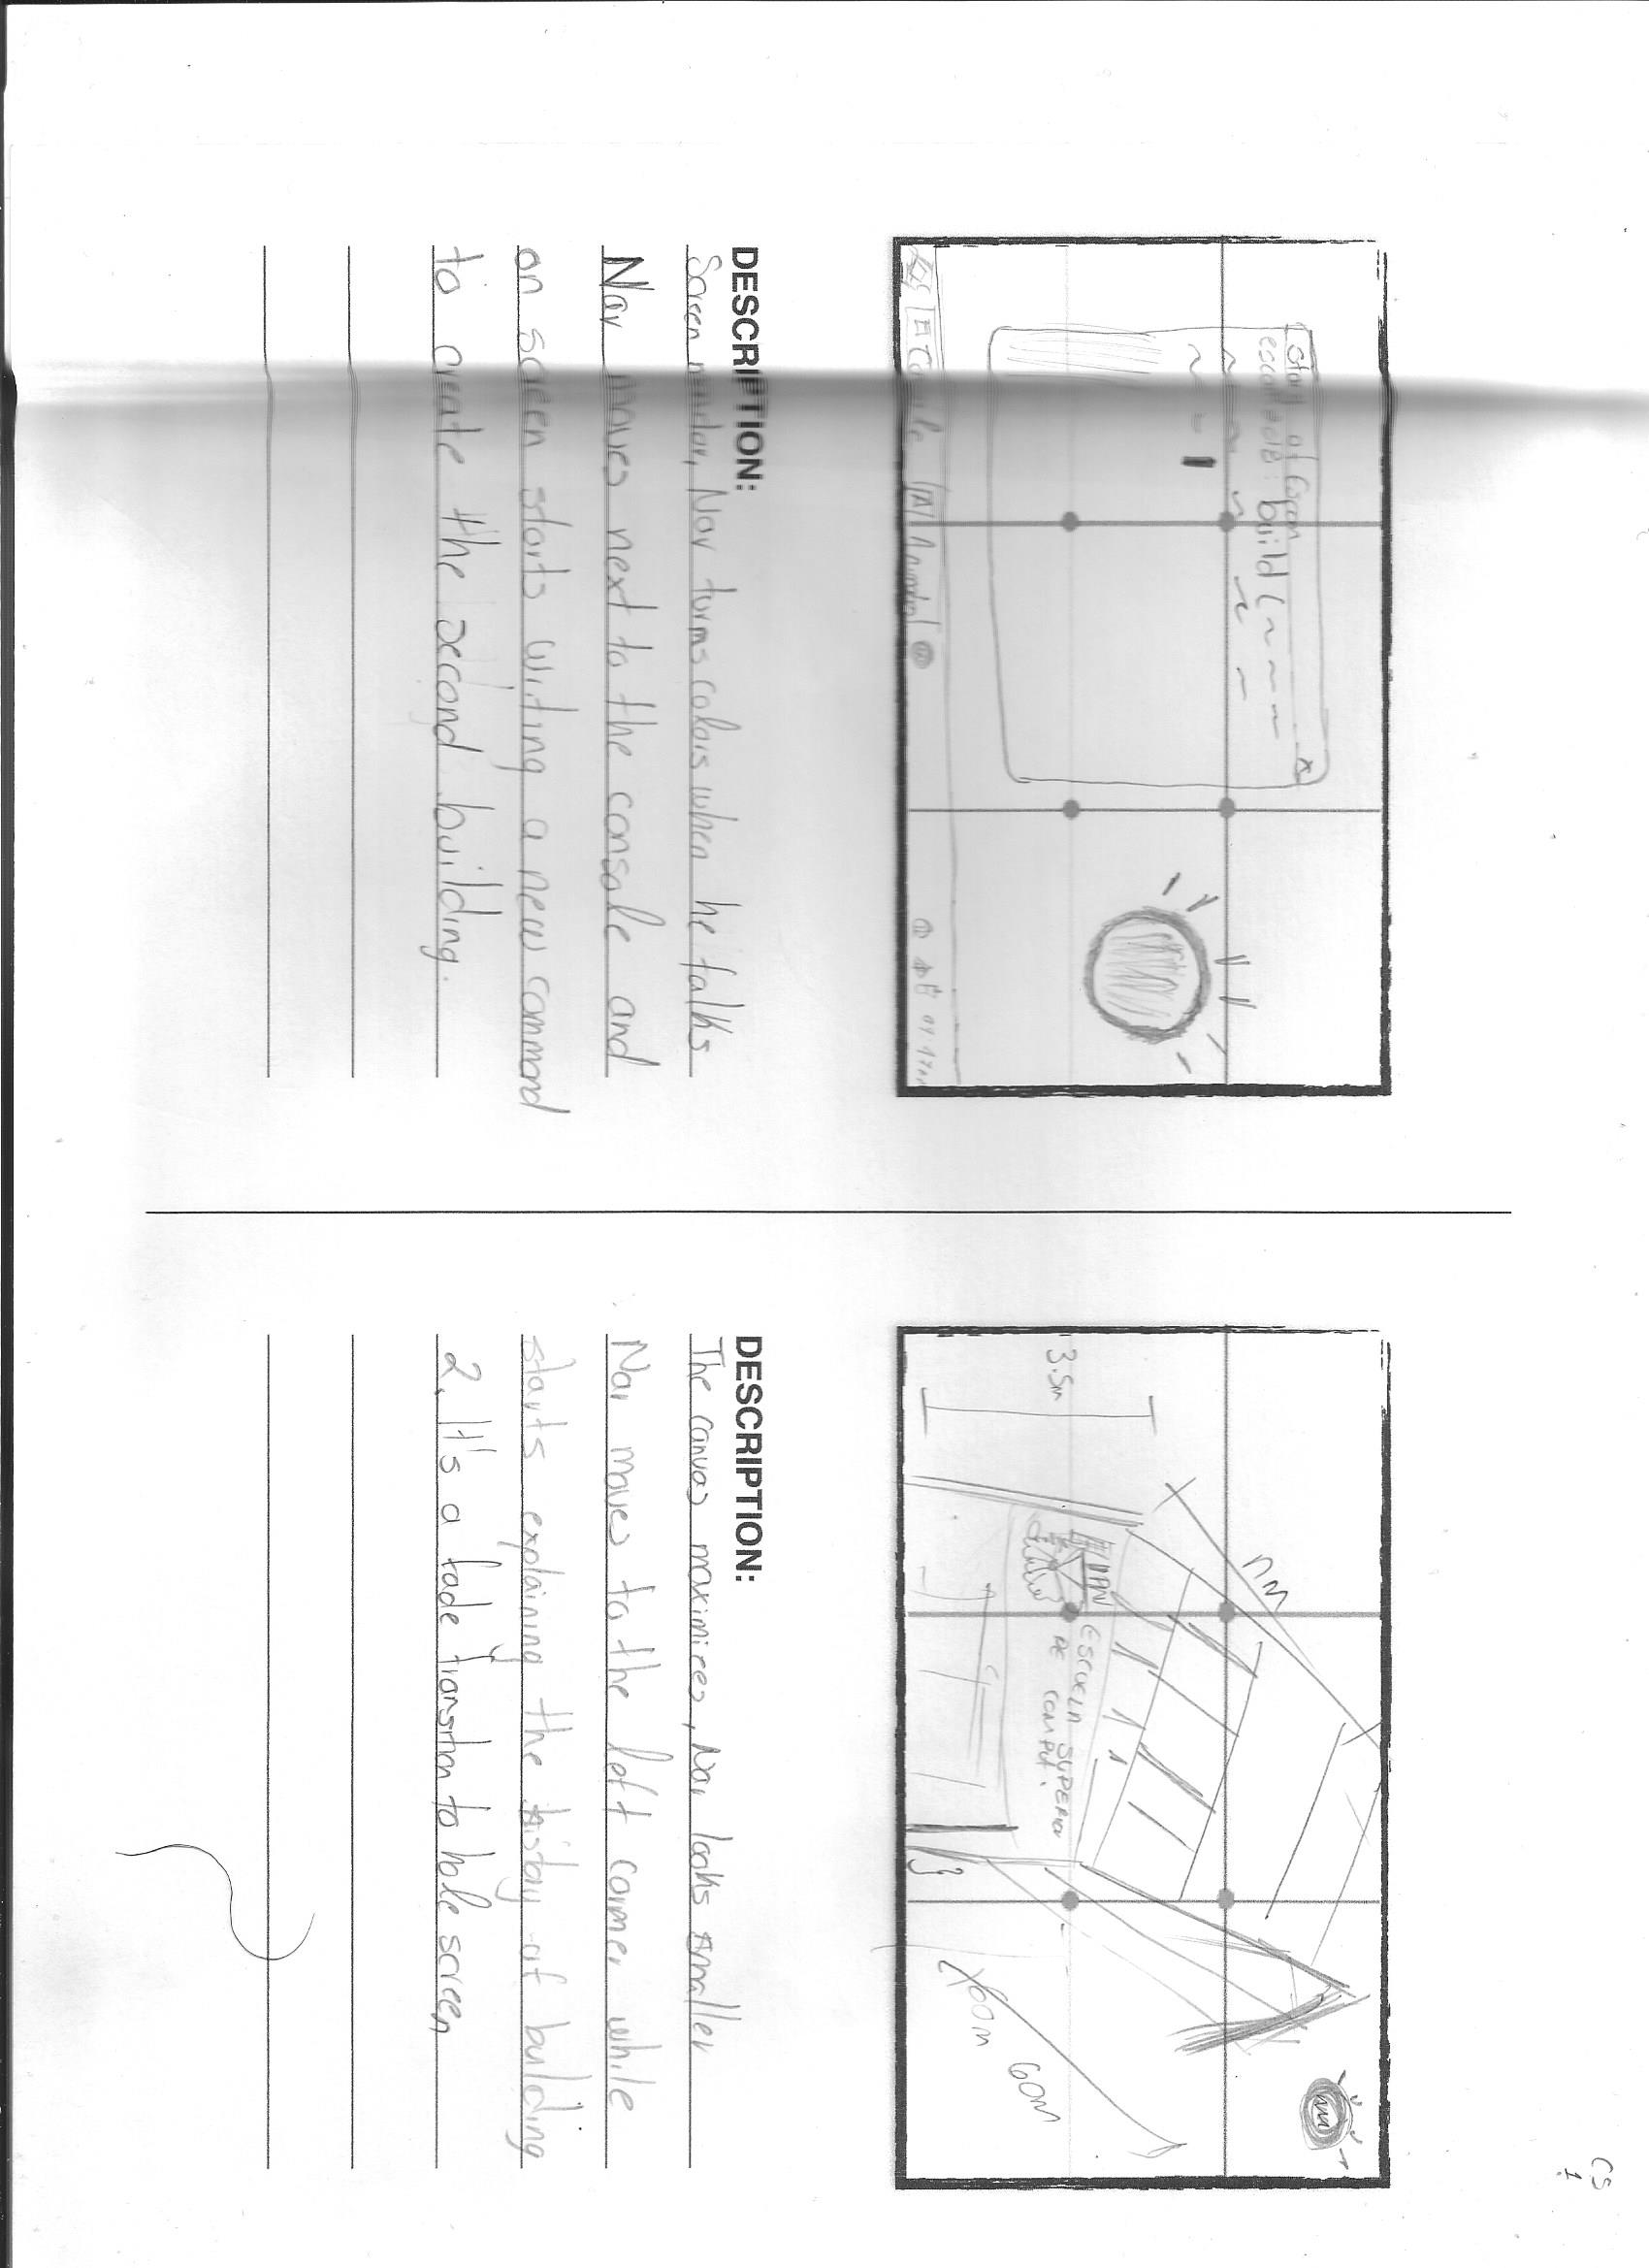 CS
1
Start of Coom
escom@edib: build (~ ~ ~ ~
x
Animate
DESCRIPTION:
Screen minitar, Nav turns colors when he talks
Nav moves next to the console and
on screen starts writing a new command
to create the second building.
3.5m
nm
ESCUELA SUPERIOR
DE COMPUT.
60m
DESCRIPTION:
The canvas maximizes, Nav looks smaller
Nav moves to the left corner while
starts explaining the history of building
2. It's a fade transition to hole screen